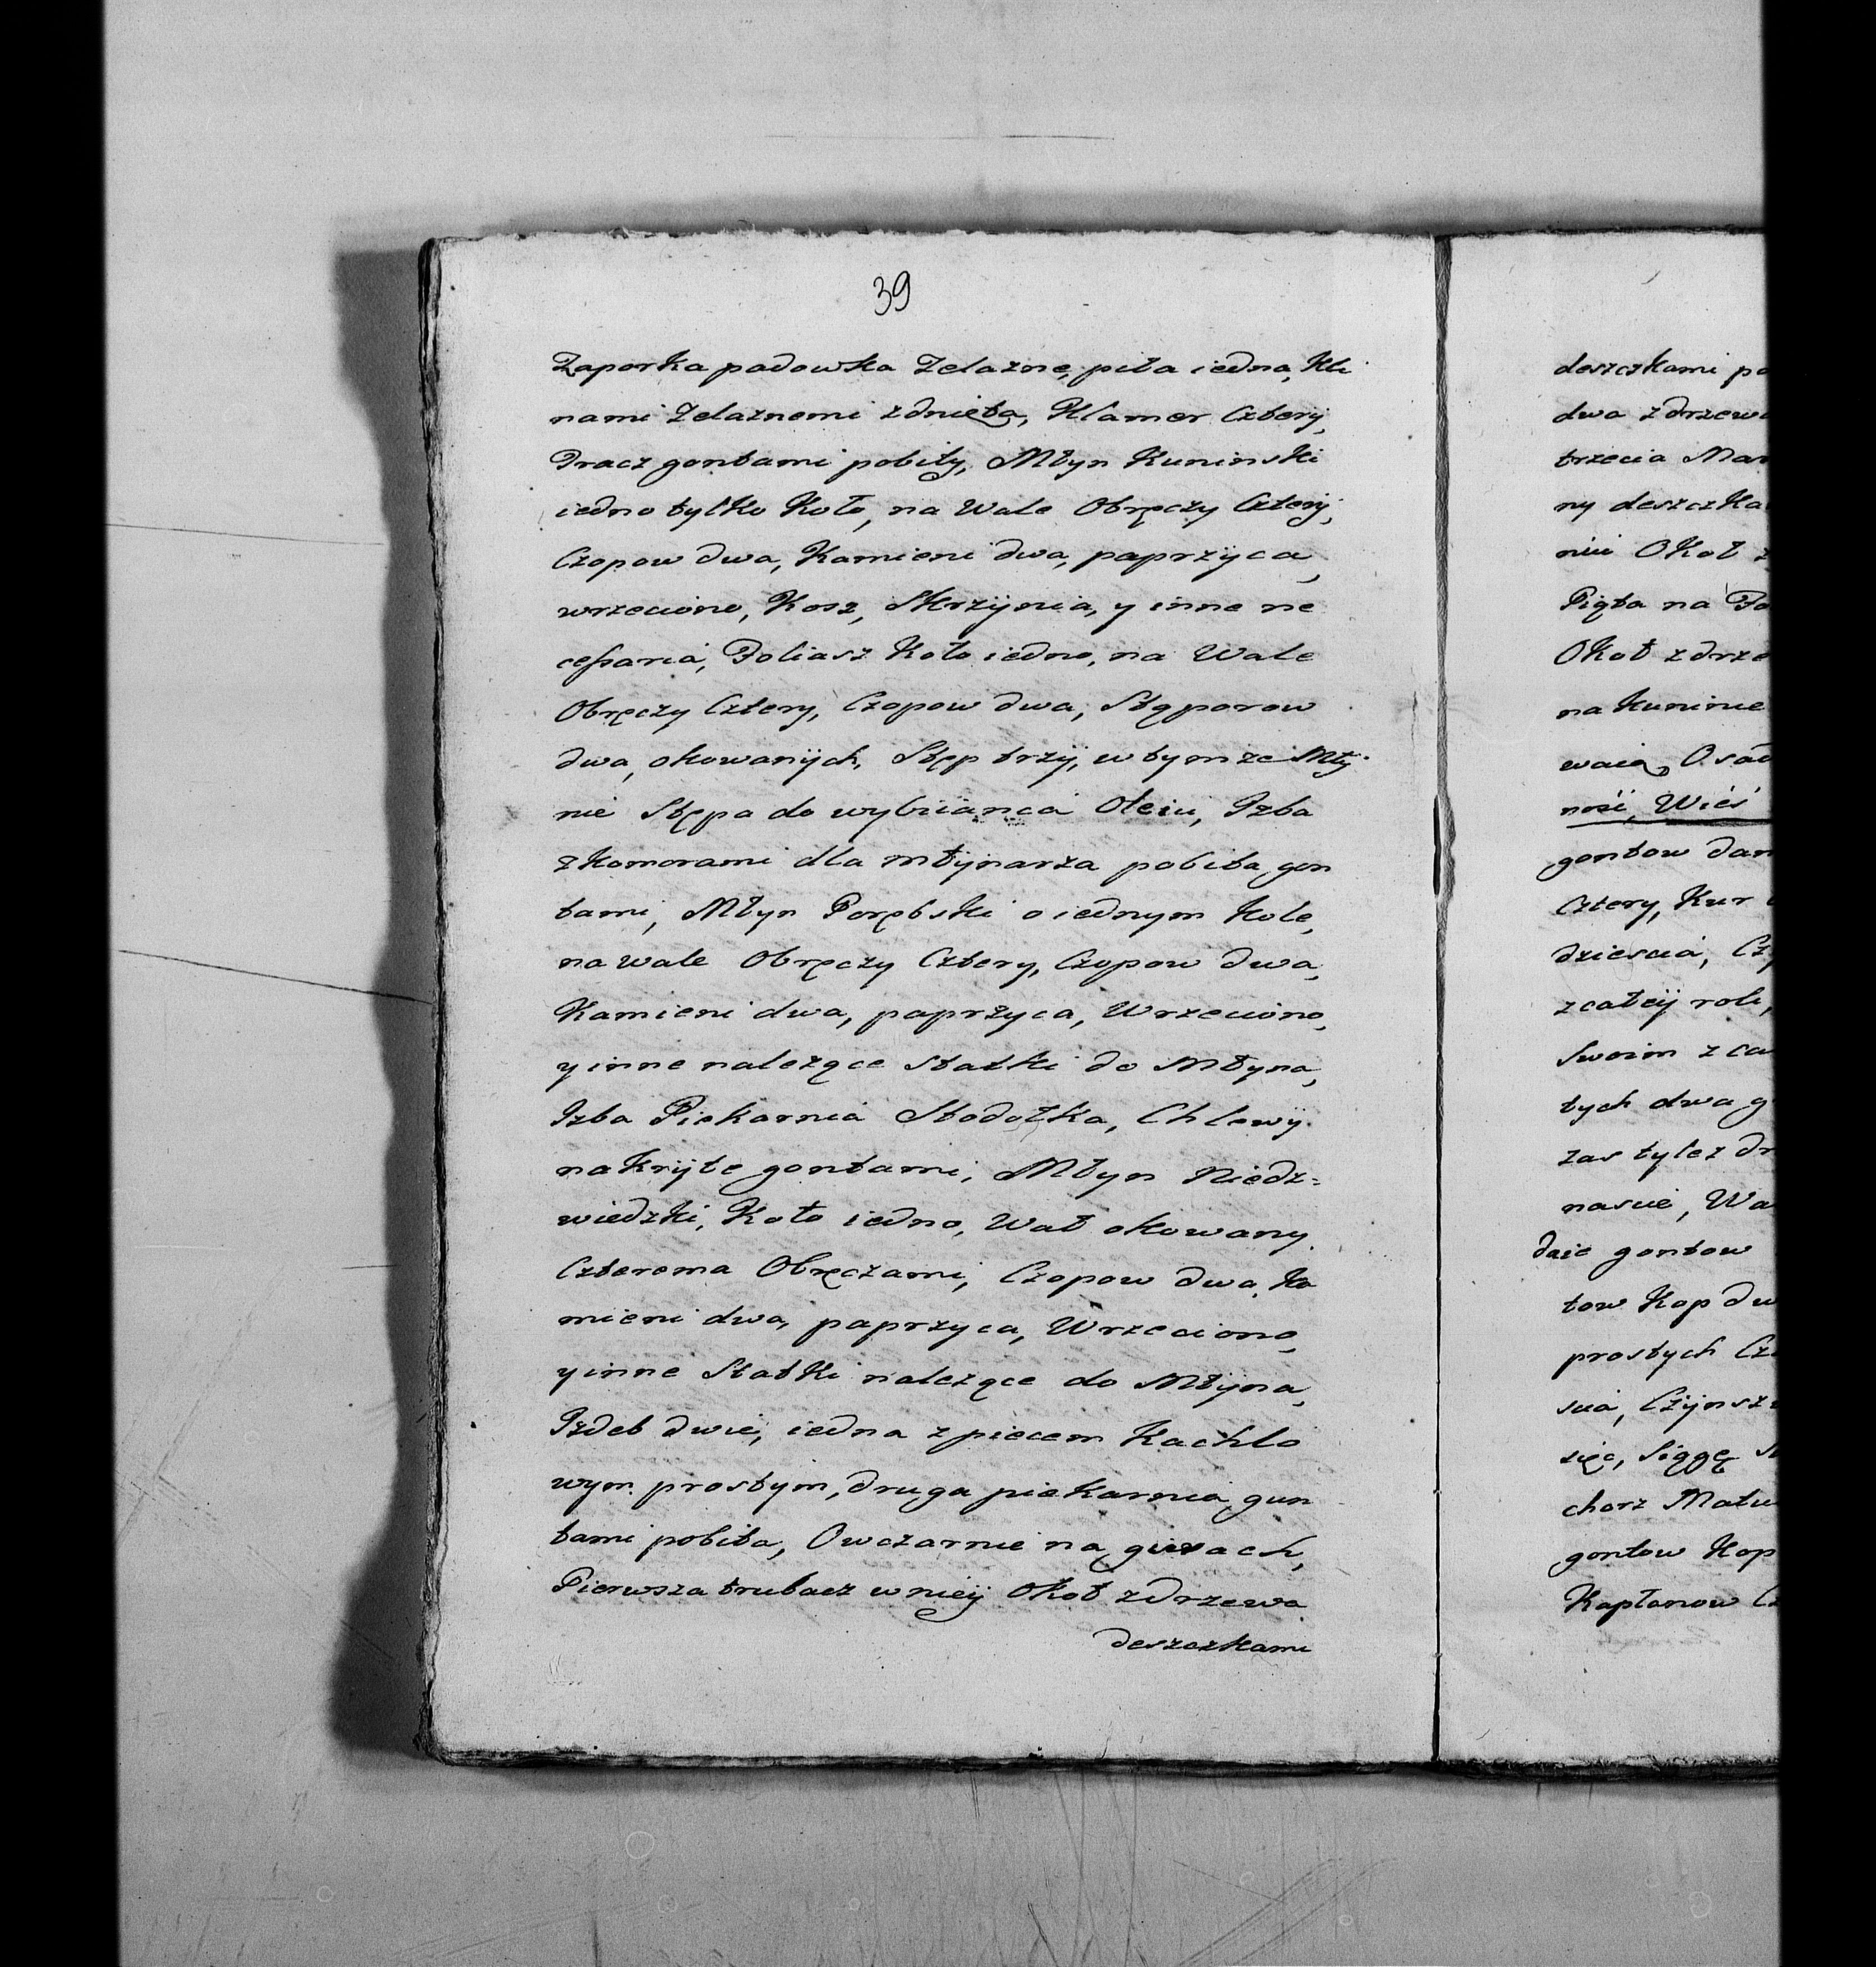 39
Zaporka padowka Zelazne, piła iedna, Kli
nami Zelaznemi zdnięta, Klamer Cztery,
Tracz gontami pobity, Młyn Kuninski
iedno tylko Koło, na Wale Obręczy Cztery,
Czopow dwa, Kamieni dwa, paprzyca,
wrzeciono, Kosz, Skrzynia, y inne ne
cessaria, Foliasz Koło iedno, na Wale
Obręczy Cztery, Czopow dwa, Stąporow
dwa, okowanych, Stęp trzy, w tymze Mły
nie Stępa do wybiiania Oleiu, Izba
z Komorami dla młynarza pobita gon
tami, Młyn Porębski o iednym Kole,
na wale Obręczy Cztery, Czopow dwa,
Kamieni dwa, paprzyca, Wrzeciono,
y inne należące Statki do Młyna,
Izba Piekarnia Stodołka, Chlewy
nakryte gontami, Młyn Niedz=
wiedzki, Koło iedno, Wał okowany
Czterema Obręczami, Czopow dwa, Ka
mieni dwa, paprzyca, Wrzeciono,
y inne Statki należące do Młyna,
Izdeb dwie, iedna z piecem Kachlo
wym prostym, druga piekarnia gun
tami pobita, Owczarnie na
Pierwsza trubacz w niey Okoł z drzewa
deszczkami
deszczkami
dwa z
trzecia
ny
Okoł
Piąta na
Okoł
na Kuninie
ność, Wieś
gontow
Cztery, Kur
z całey roli,
Swoim
tych dwa
zas tylez
nascie,
daie gontow
tow Kop
prostych
chorz
gontow Kop
Kapłonow